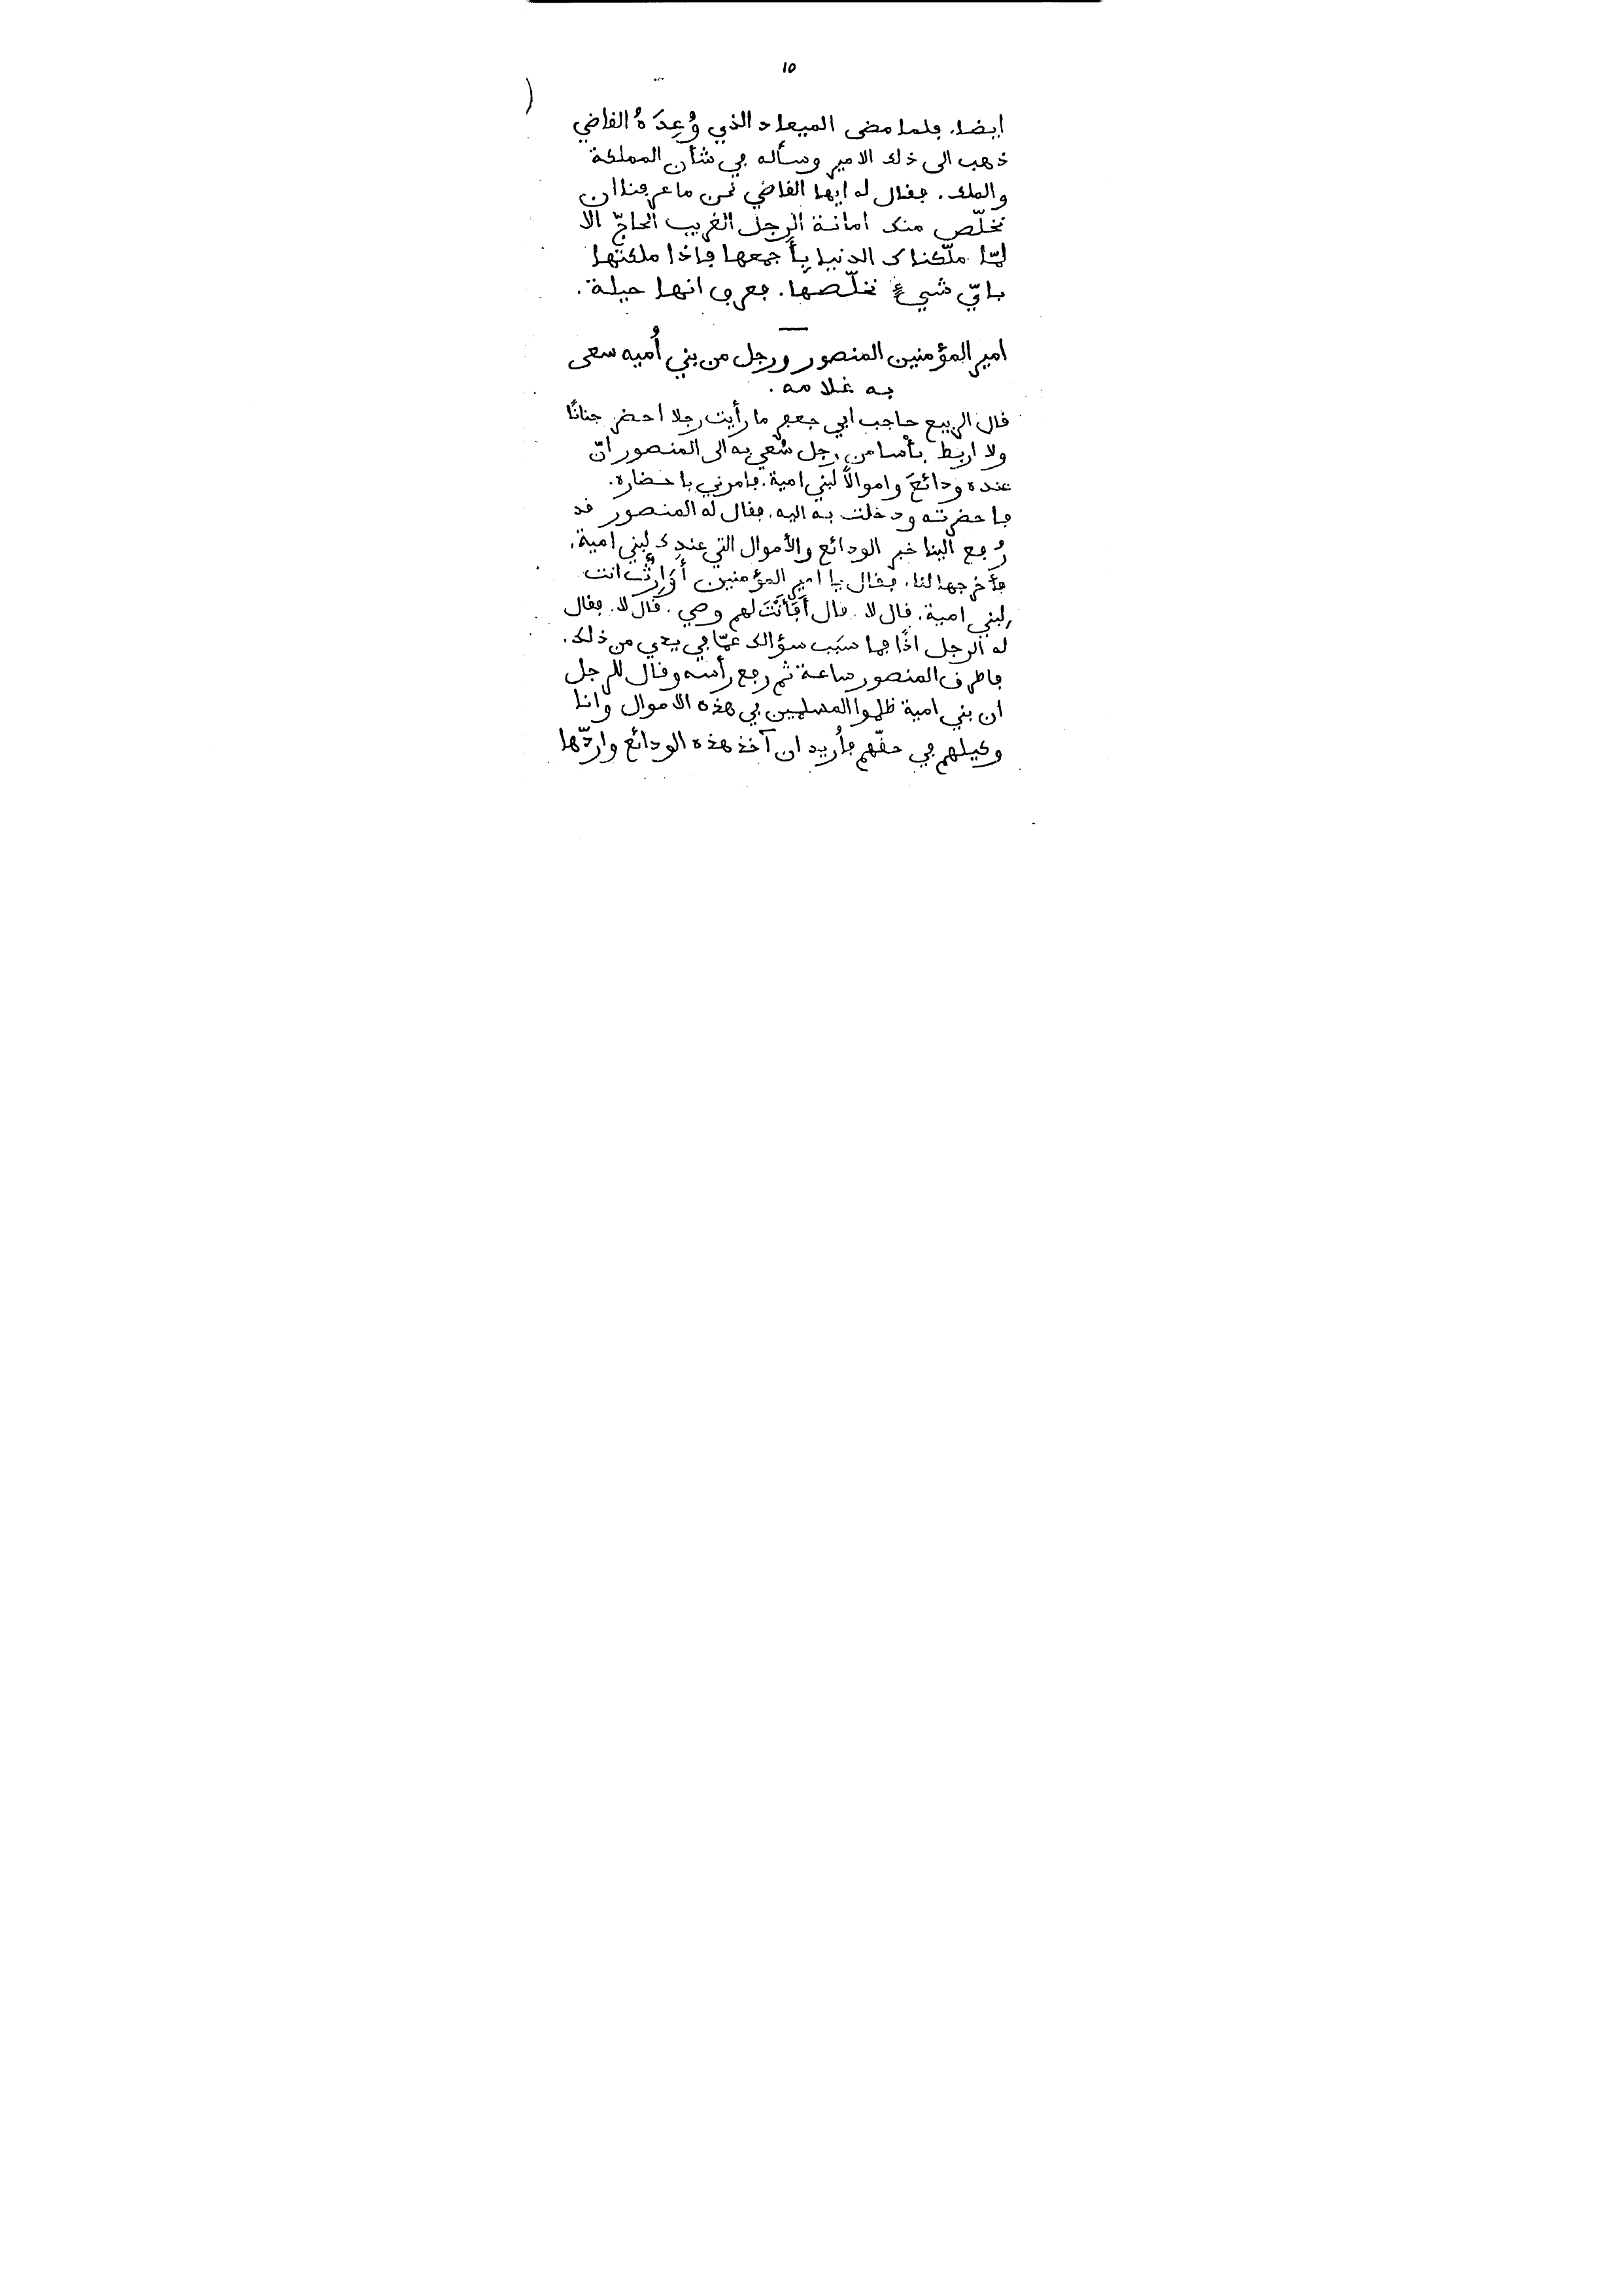 ١٥
ايضا. فلما مضى الميعاد الذي وُعِدَهُ القاضي
ذهب الى ذلك الامير وسأله في شأن المملكة
والملك. فقال له ايها القاضي نحن ما عرفنا ان
نخلّص منك امانة الرجل الغريب الحاجّ الا
لمّا ملّكناك الدنيا بأجمعها فاذا ملكتها
بايّ شيءٍ نخلّصها. فعرف انها حيلة.
امير المؤمنين المنصور ورجل من بني أُميه سعى
به غلامه.
قال الربيع حاجب ابي جعفر ما رأيت رجلا احضر جنانًا
ولا اربط بأسا من رجل سُعي به الى المنصور انّ
عنده ودائعَ واموالاً لبني امية. فامرني باحضاره.
فاحضرته ودخلت به اليه. فقال له المنصور قد
رُفع الينا خبر الودائع والأموال التي عندك لبني امية.
فأخرجها لنا. فقال يا امير المؤمنين أَوَارِثٌ انت
لبني امية. قال لا. قال أَفَأَنْتَ لهم وصي. قال لا. فقال
له الرجل اذًا فما سَبَب سؤالك عمّا في يدي من ذلك.
فاطرق المنصور ساعة ثم رفع رأسه وقال للرجل
ان بني امية ظلموا المسلمين في هذه الاموال وانا
وكيلهم في حقّهم فأريد ان آخذ هذه الودائع واردّها